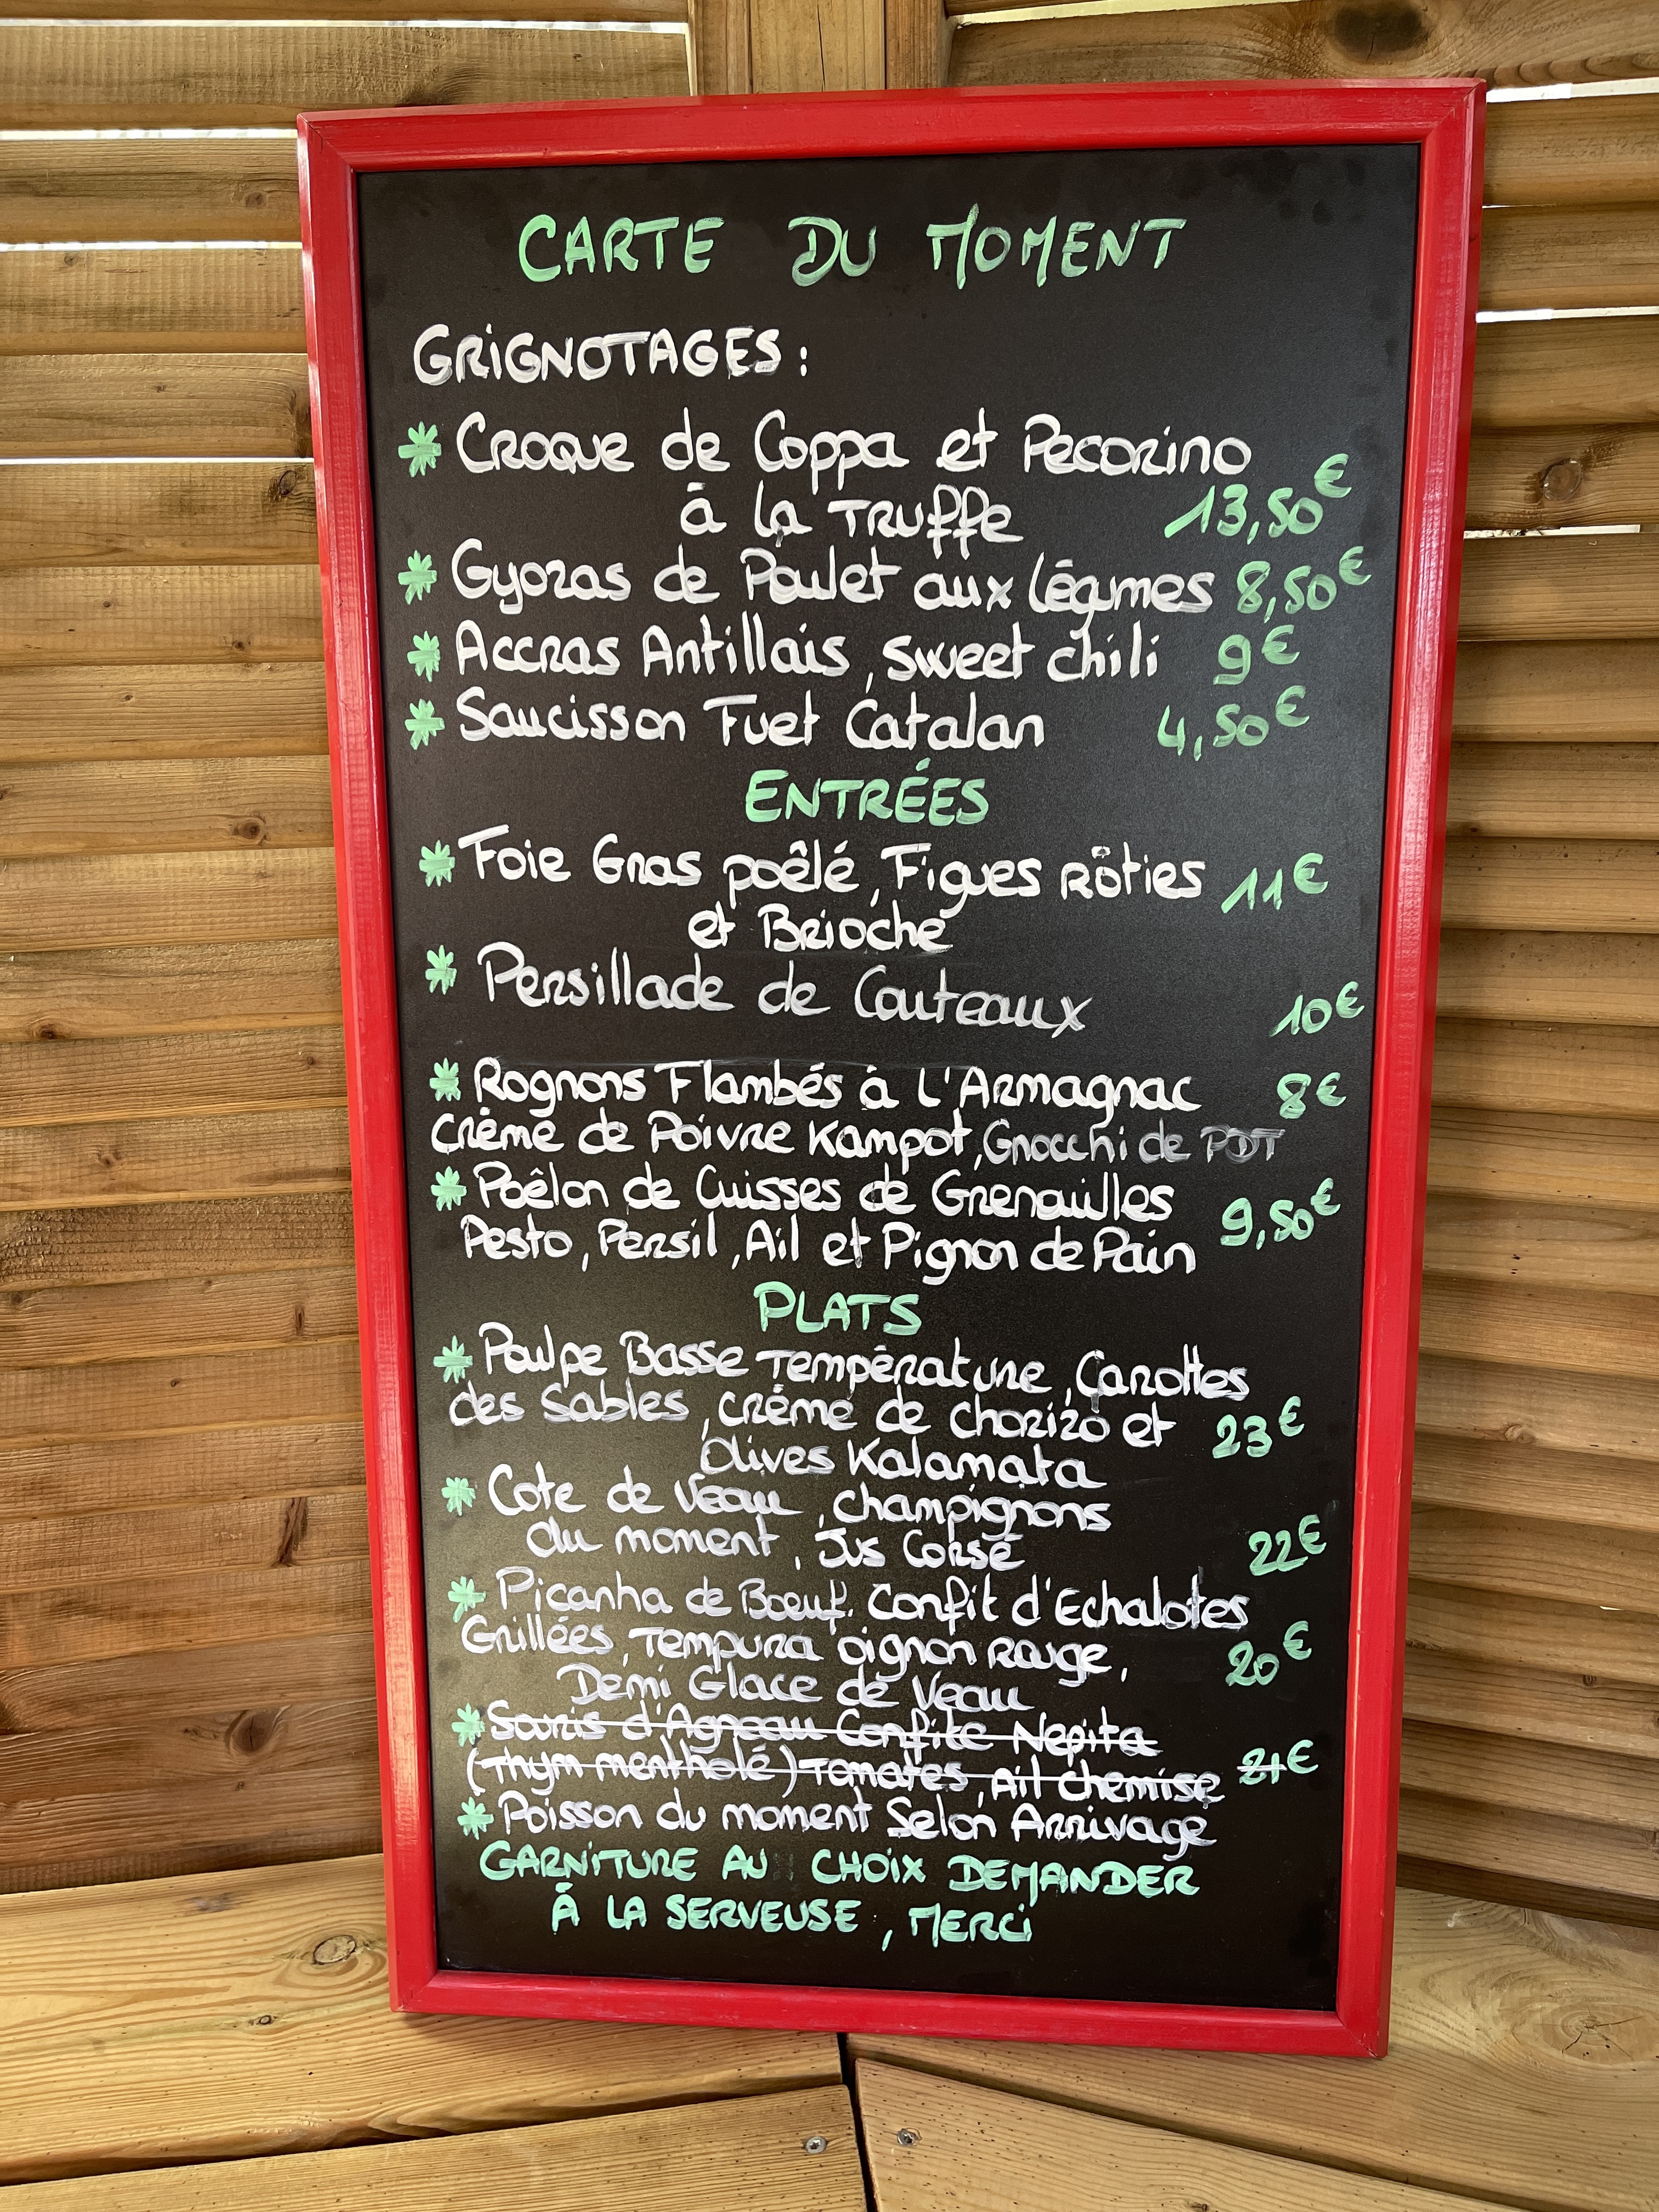 CARTE DU MOMENT
GRiGNOTAGES :
* Croque de Coppa et Pecorino
à la Truffe 13,50€
* Gyozas de Poulet aux légumes 8,50€
* Accras Antillais, sweet chili 9€
* Saucisson Fuet Catalan 4,50€
ENTRÉES
* Foie Gras poêlé, Figues rôties 11€
et Brioche
* Persillade de Couteaux 10€
* Rognons Flambés à l'Armagnac 8€
Crème de Poivre Kampot, Gnocchi de PDT
* Poêlon de Cuisses de Grenouilles
Pesto, Persil, Ail et Pignon de Pain 9,50€
PLATS
* Poulpe Basse Température, Carottes
des Sables, crème de chorizo et 23€
Olives Kalamata
* Cote de Veau, champignons
du moment, Jus Corsé 22€
* Picanha de Boeuf, Confit d'Echalotes
Grillées, Tempura oignon Rouge, 20€
Demi Glace de Veau
* Souris d'Agneau Confite Nepita
(Thym mentholé) Tomates, Ail chemise 21€
* Poisson du moment Selon Arrivage
GARNiTURE AU CHOiX DEMANDER
À LA SERVEUSE, MERCi